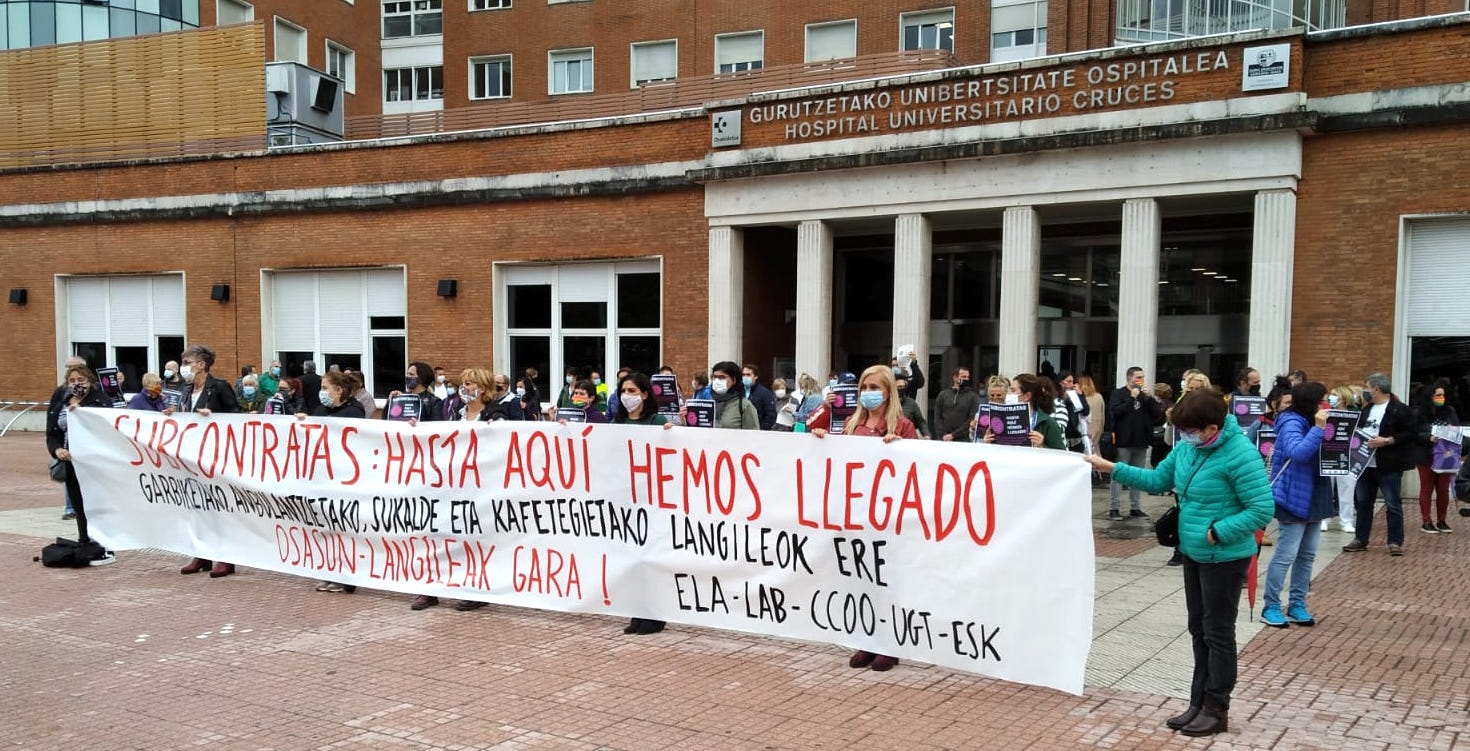 GURUTZETAKO UNIBERTSITATE OSPITALEA
HOSPITAL UNIVERSITARIO CRUCES
Osakidetza
SUBCONTRATAS: HASTA AQUÍ HEMOS LLEGADO
GARBIKETAKO, ANBULANTZIETAKO, SUKALDE ETA KAFETEGIETAKO LANGILEOK ERE
OSASUN-LANGILEAK GARA!
ELA-LAB-CCOO-UGT-ESK
SUBCONTRATAS